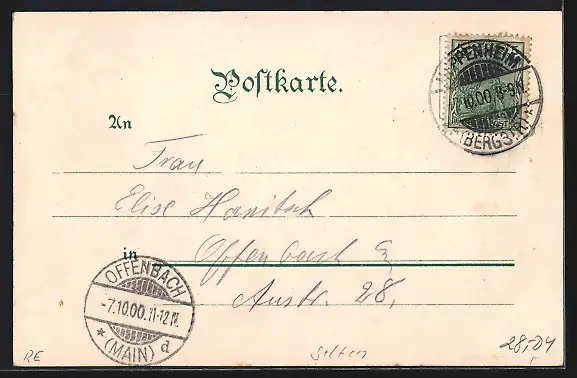 Postkarte.
PPENHEIM
7.10.00 8-9N.
(BERGSTR.)
An
Frau
Elise Hanitsch
in Offenbach a/
Austr. 28,
OFFENBACH
-7.10.00.11-12N.
* (MAIN) d
RE
selten
28,04